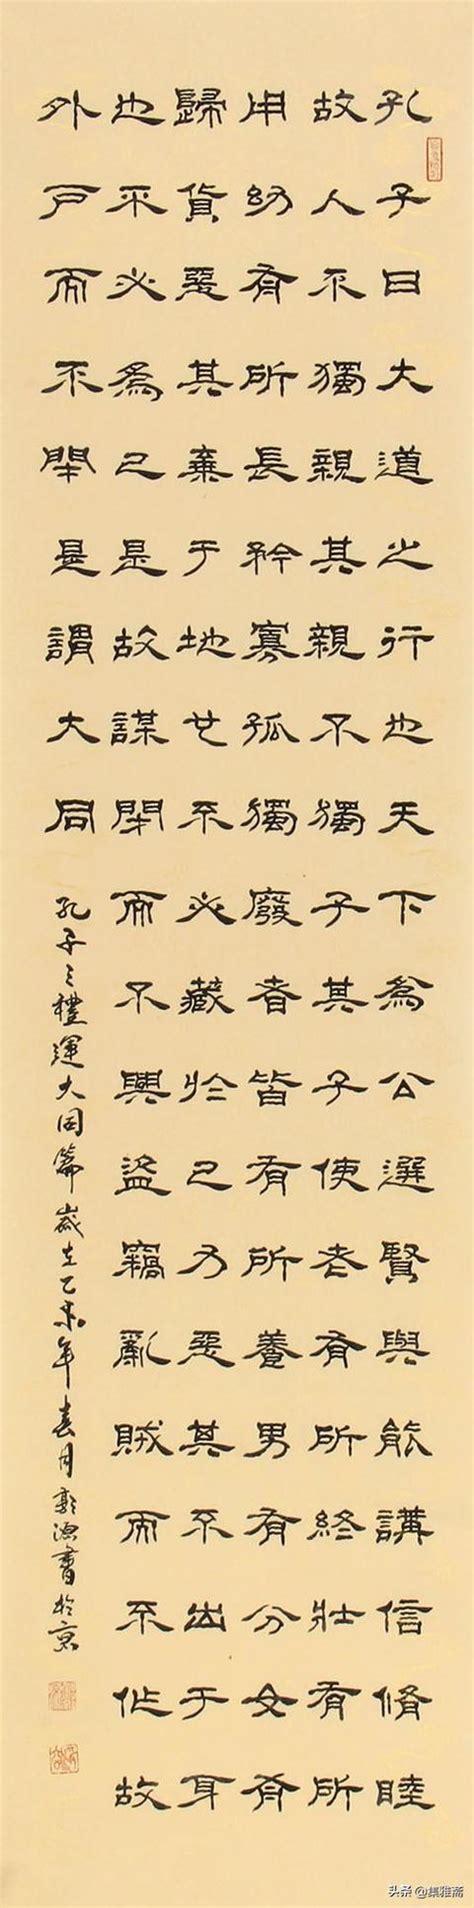 孔子曰大道之行也天下為公選賢與能講信脩睦
故人不獨親其親不獨子其子使老有所終壯有所
用幼有所長矜寡孤獨廢者皆有所養男有分女有
歸貨惡其棄于地也不必藏於己乃惡其不出于耳
也不必為己是故謀閉而不興盜竊亂賊而不作故
外戶而不閉是謂大同
孔子之禮運大同篇歲在乙未年春月郭書於京
头条@集雅斋